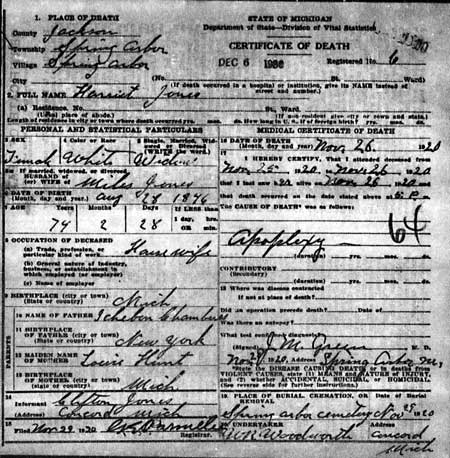 1. PLACE OF DEATH
County Jackson
Township Spring Arbor
Village Spring Arbor
City
STATE OF MICHIGAN
Department of State—Division of Vital Statistics
CERTIFICATE OF DEATH
DEC 6
Registered No. 6
(No. St. Ward)
(If death occurred in a hospital or institution, give its NAME instead of street and number.)
2. FULL NAME Harriet Jones
(a) Residence. No. St., Ward.
(Usual place of abode)
(If non-resident give city or town and state.)
Length of residence in city or town where death occurred yrs. mos. ds. How long in U. S., if of foreign birth? yrs. mos. ds.
PERSONAL AND STATISTICAL PARTICULARS
3 SEX
4 Color or Race
5 Single, Married, Widowed or Divorced
Female White Widow
5a If married, widowed, or divorced
HUSBAND of
(or) WIFE of Miles Jones
6 DATE OF BIRTH
(Month, day and year) Aug 29 1846
7 AGE Years Months Days If LESS than 1 day, hrs. OR min.
74 2 28
8 OCCUPATION OF DECEASED
(a) Trade, profession, or particular kind of work Housewife
(b) General nature of industry, business, or establishment in which employed (or employer)
(c) Name of employer
9 BIRTHPLACE (city or town)
(State or country) Mich
PARENTS
10 NAME OF FATHER
11 BIRTHPLACE OF FATHER (city or town)
(State or country) New York
12 MAIDEN NAME OF MOTHER Hunt
13 BIRTHPLACE OF MOTHER (city or town)
(State or country) Mich
14 Informant Clifton Jones
(Address) Concord Mich
15 Filed Nov 29, 1920
Registrar.
MEDICAL CERTIFICATE OF DEATH
16 DATE OF DEATH
(Month, day and year) Nov 26 1920
17 I HEREBY CERTIFY, That I attended deceased from
Nov 25 1920, to Nov 26 1920
that I last saw her alive on Nov 26 1920 and
that death occurred on the date stated above at
The CAUSE OF DEATH* was as follows:
64
Apoplexy
(duration) yrs. mos. ds.
CONTRIBUTORY
(Secondary)
(duration) yrs. mos. ds.
18 Where was disease contracted
if not at place of death?
Did an operation precede death? Date of
Was there an autopsy?
What test confirmed diagnosis?
(Signed) J. M. Green M. D.
1920, Address Spring Arbor
*State the DISEASE CAUSING DEATH or in deaths from VIOLENT CAUSES, state (1) MEANS and NATURE OF INJURY, and (2) whether ACCIDENTAL, SUICIDAL, or HOMICIDAL.
(See reverse side for further instructions).
19 PLACE OF BURIAL, CREMATION, OR REMOVAL Date of Burial
Spring Arbor Cemetery Nov 29 1920
20 UNDERTAKER Address
Woodworth Concord
Mich